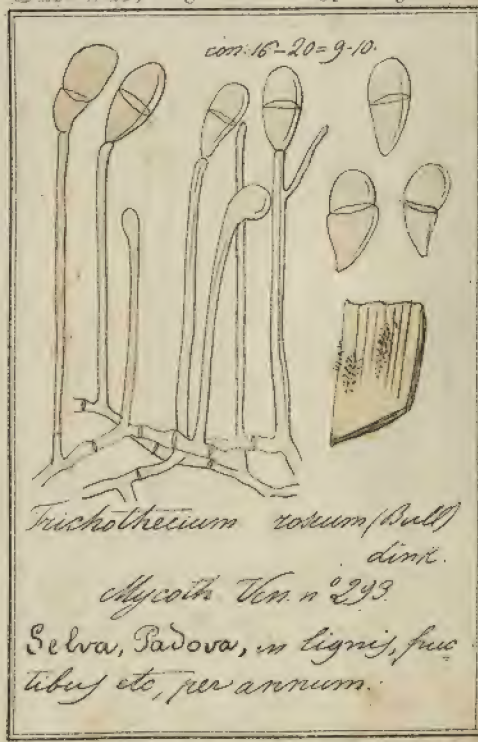 con. 16-20=9-10.
Trichothecium roseum (Bull)
Link.
Mycoth. Ven. nº 293.
Selva, Padova, in lignis, fruc-
tibus etc, per annum.